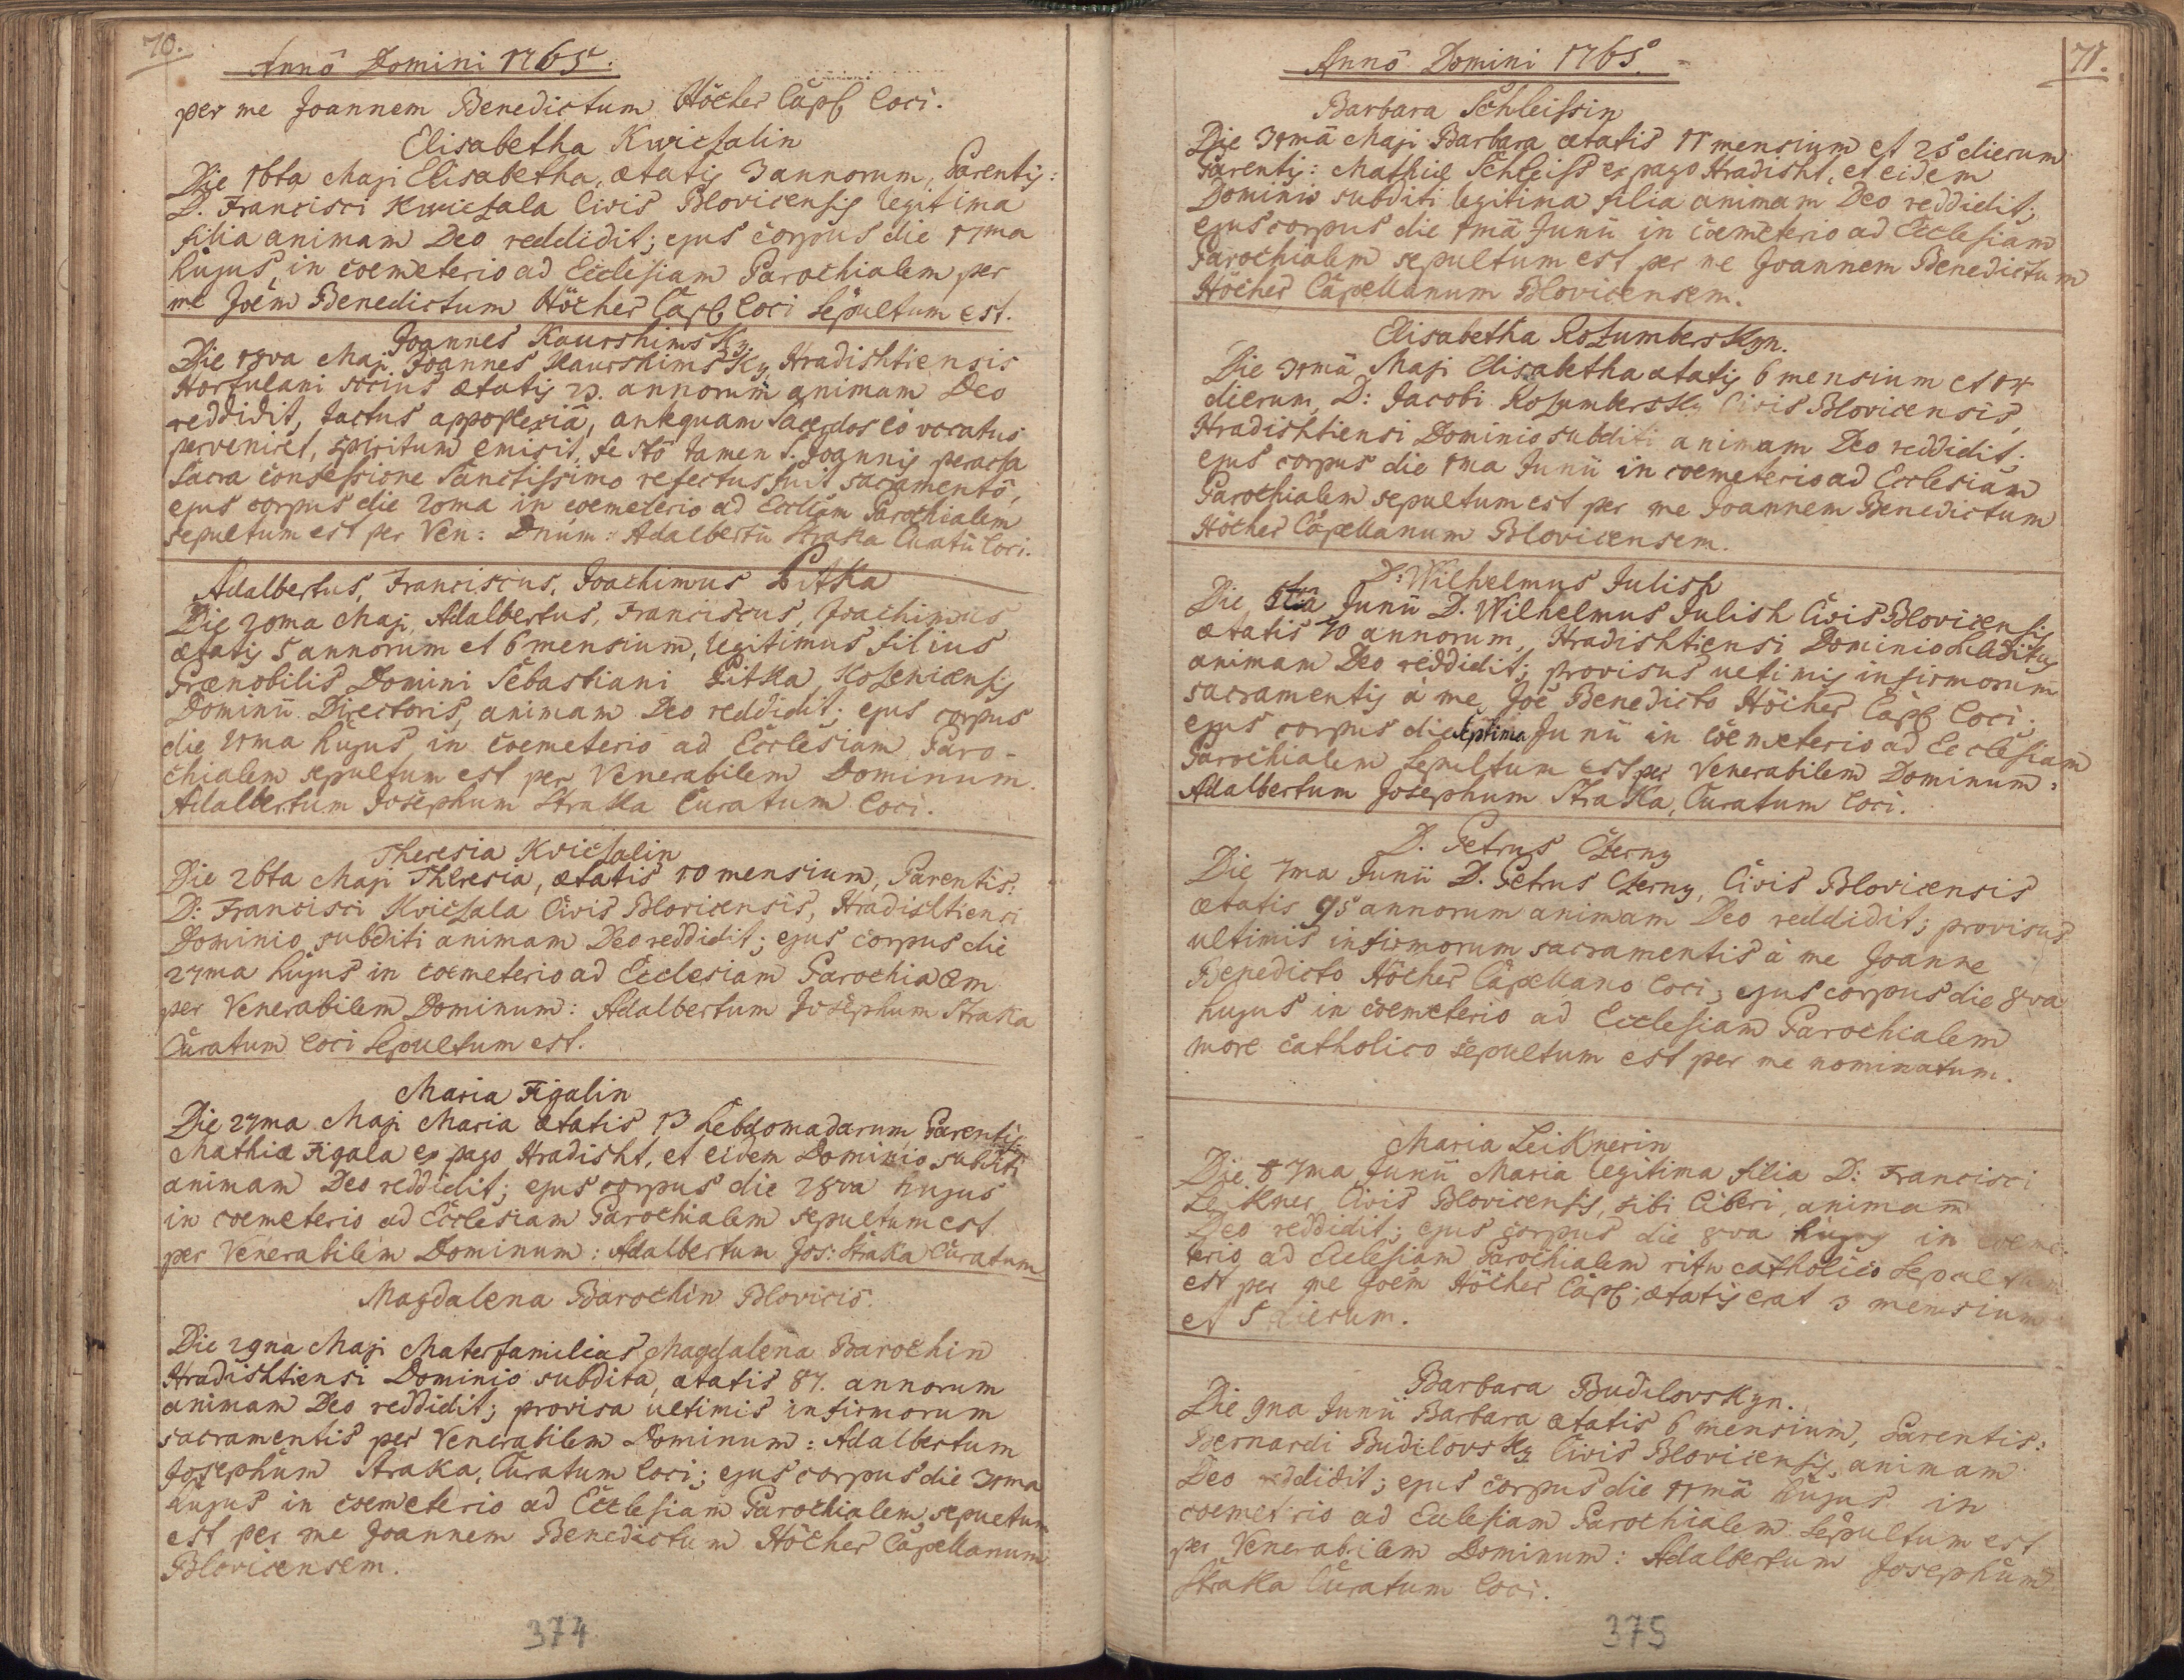 70.
Annô Domini 1765.
per me Joannem Benedictum Höcher Capl. loci.
Elisabetha Kwiesalin
Die 16ta Maji Elisabetha, ætatis 3 annorum, Parentis:
D. Francisci Kwiesala Civis Blovicensis legitima
filia animam Deo reddidit; ejus corpus die 17ma
hujus in coemeterio ad Ecclesiam Parochialem per
me Joem Benedictum Höcher Capl. loci sepultum est.
Joannes Kaurshimsky.
Die 18va Maji Joannes Kaurshimsky, Hradishtiensis
Hortulani socius ætatis 23. annorum animam Deo
reddidit, tactus appoplexiâ, antequam Sacerdos eo vocatus
perveniret, spiritum emisit, festô tamen S. Joannis peracta
sacra confessione Sanctissimo refectus fuit sacramentô,
ejus corpus die 20ma in coemeterio ad Eccliam Parochialem
sepultum est per Ven: Dnum: Adalbertū Straka Curatū loci.
Adalbertus, Franciscus, Joachimus Pitka
Die 20ma Maji, Adalbertus, Franciscus, Joachimus
ætatis 5 annorum et 6 mensium, legitimus filius
Prænobilis Domini Sebastiani Pitka Koseniensis
Dominii Directoris, animam Deo reddidit; ejus corpus
die 21ma hujus in coemeterio ad Ecclesiam Paro-
chialem sepultum est per Venerabilem Dominum.
Adalbertum Josephum Straka Curatum loci.
Theresia Kviesalin
Die 26ta Maji Theresia, ætatis 10 mensium, Parentis:
D: Francisci Kviesala Civis Blovicensis, Hradishtiensi
Dominio subditi animam Deo reddidit; ejus corpus die
27ma hujus in coemeterio ad Ecclesiam Parochialem
per Venerabilem Dominum: Adalbertum Josephum Straka
Curatum loci sepultum est.
Maria Figalin
Die 27ma Maji Maria ætatis 13 hebdomadarum Parentis
Mathiæ Figala ex pago Hradisht, et eidem Dominio subditi
animam Deo reddidit; ejus corpus die 28va hujus
in coemeterio ad Ecclesiam Parochialem sepultum est
per Venerabilem Dominum: Adalbertum Jos: Straka Curatum
Magdalena Barochin Blovicis.
Die 29na Maji Materfamilias Magdalena Barochin
Hradishtiensi Dominio subdita, ætatis 87. annorum
animam Deo reddidit; provisa ultimis infirmorum
sacramentis per Venerabilem Dominum: Adalbertum
Josephum Straka, Curatum loci; ejus corpus die 31ma
hujus in coemeterio ad Ecclesiam Parochialem sepultum
est per me Joannem Benedictum Höcher Capellanum
Blovicensem.
374
71.
Annô Domini 1765.
Barbara Schleissin
Die 31mâ Maji Barbara ætatis 11 mensium et 25 dierum
Parentis: Mathiæ Schleiss ex pago Hradisht, et eidem
Dominio subditi legitima filia animam Deo reddidit;
ejus corpus die 1mâ Junii in coemeterio ad Ecclesiam
Parochialem sepultum est per me Joannem Benedictum
Höcher Capellanum Blovicensem.
Elisabetha Rosumberskyn.
Die 31mâ Maji Elisabetha ætatis 6 mensium et 14
dierum, D: Jacobi Rosumbersky Civis Blovicensis,
Hradishtiensi Dominio subditi animam Deo reddidit;
ejus corpus die 1ma Junii in coemeterio ad Ecclesiam
Parochialem sepultum est per me Joannem Benedictum
Höcher Capellanum Blovicensem.
D: Wilhelmus Julish
Die 5ta Junii D. Wilhelmus Julish Civis Blovicensis
ætatis 70 annorum, Hradishtiensi Dominio subditus
animam Deo reddidit; provisus ultimis infirmorum
sacramentis à me Joe Benedicto Höcher Capl. loci;
ejus corpus die septima Junii in coemeterio ad Ecclesiam
Parochialem sepultum est per Venerabilem Dominum:
Adalbertum Josephum Straka, Curatum loci.
D. Petrus Czerny
Die 7ma Junii D. Petrus Czerny, Civis Blovicensis
ætatis 95 annorum animam Deo reddidit; provisus
ultimis infirmorum sacramentis à me Joanne
Benedicto Höcher Capellano loci; ejus corpus die 8va
hujus in coemeterio ad Ecclesiam Parochialem
more catholico sepultum est per me nominatum.
Maria Leiknerin
Die 7ma Junii Maria legitima filia D: Francisci
Leikner Civis Blovicensis, sibi liberi, animam
Deo reddidit; ejus corpus die 8va hujus in coeme-
terio ad Ecclesiam Parochialem ritu catholico sepultum
est per me Joem Höcher Capl; ætatis erat 3 mensium
et 5 dierum.
Barbara Budilovskyn.
Die 9na Junii Barbara ætatis 6 mensium, Parentis:
Bernardi Budilovsky Civis Blovicensis, animam
Deo reddidit; ejus corpus die 11mâ hujus in
coemetrio ad Ecclesiam Parochialem sepultum est
per Venerabilem Dominum: Adalbertum Josephum
Straka Curatum loci.
375